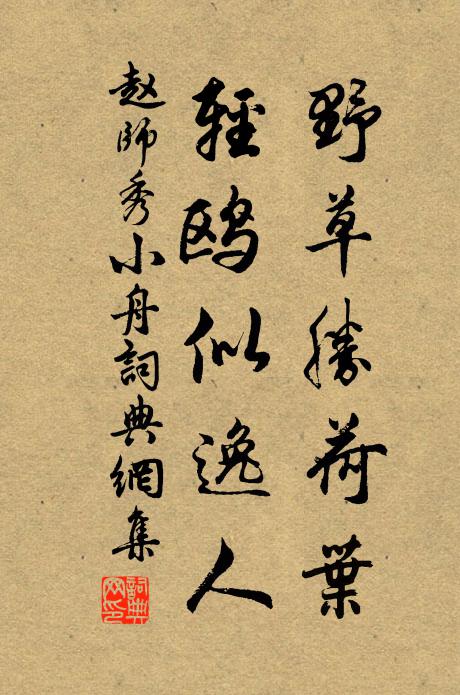 野草勝荷葉
輕鷗似逸人
赵師秀小舟詞典網集
詞典網印